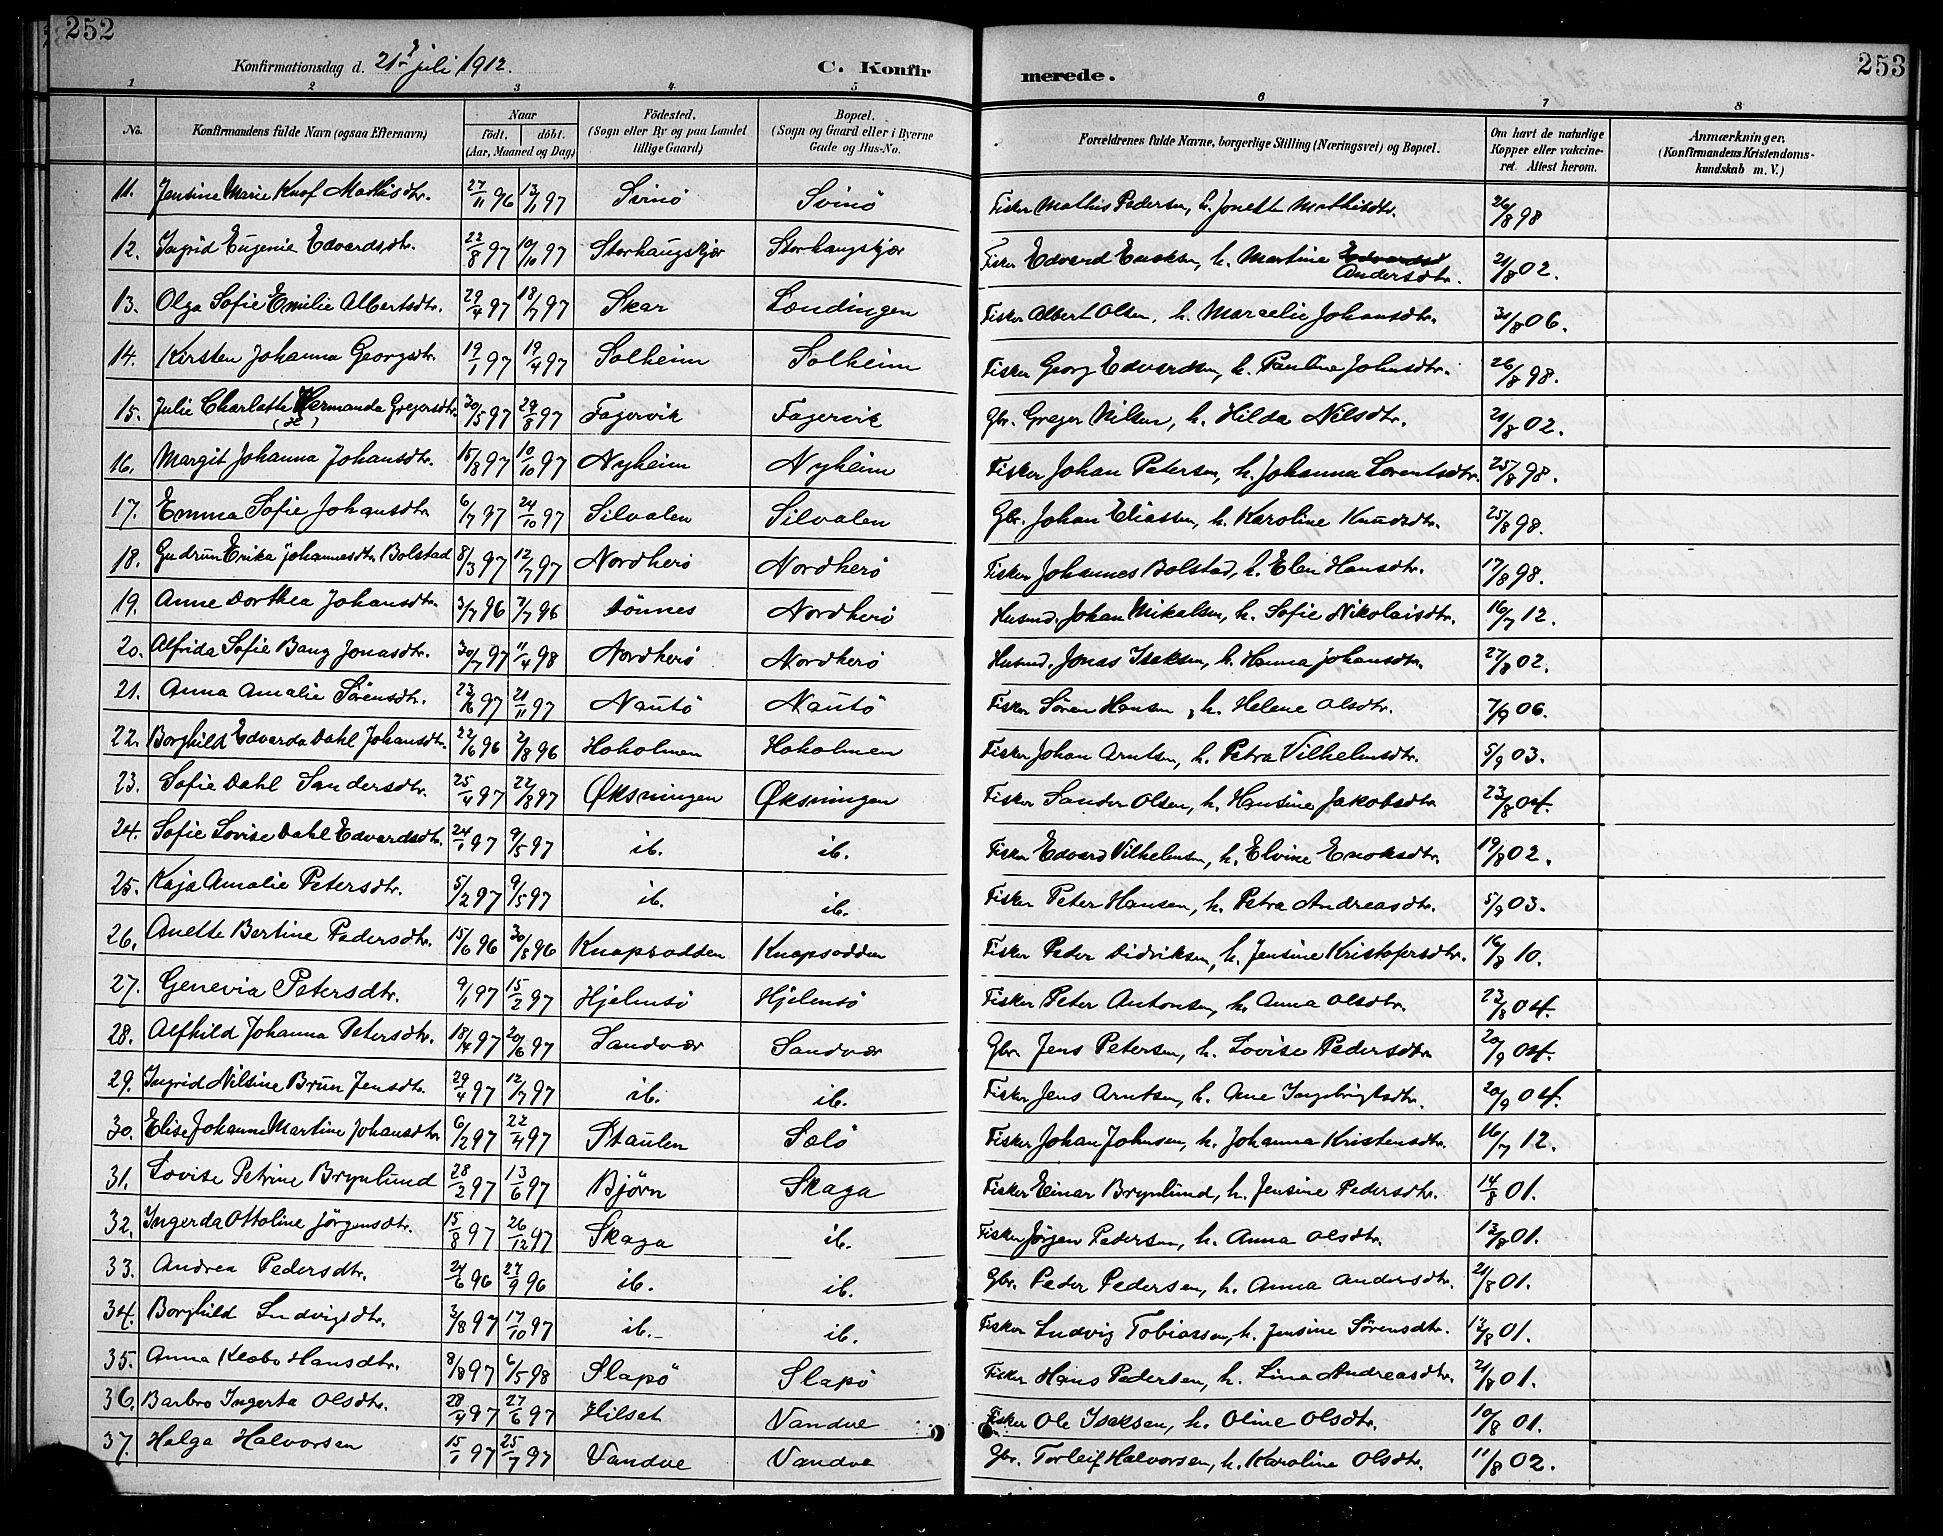 252
Konfirmationsdag d. 21 juli 1912.
C. Konfir
merede.
253
1 2 3 4 5 6 7 8
No.
Konfirmandens fulde Navn (ogsaa Efternavn)
Naar
födt. döbt.
(Aar, Maaned og Dag)
Födested.
(Sogn eller By og paa Landet
tillige Gaard)
Bopæl.
(Sogn og Gaard eller i Byerne
Gade og Hus-No.
Forældrenes fulde Navne, borgerlige Stilling (Næringsvei) og Bopæl.
Om havt de naturlige
Kopper eller vakcine-
ret. Attest herom.
Anmærkninger.
(Konfirmandens Kristendoms-
kundskab m. V.)
11. Jensine Marie Knof Mathisdtr. 27/11 96 13/11 97 Svinö Svinö Fisker Mathis Pedersen, h. Jonette Mathisdtr. 26/8 98
12. Ingrid Eugenie Edvardsdtr. 22/8 97 10/10 97 Storhaugskjær Storhaugskjær Fisker Edvard Enoksen, h. Martine Edvardsd Andersdtr. 21/8 02.
13. Olga Sofie Emilie Albertsdtr. 29/4 97 18/7 97 Skar Lændingen Fisker Albert Olsen, h. Marcelie Johansdtr. 31/8 06.
14. Kirsten Johanna Georgsdtr. 19/1 97 19/4 97 Solheim Solheim Fisker Georg Edvardsen, h. Pauline Johnsdtr. 26/8 98.
15. Julie Charlotte Hermanda Gregersdtr. (H) 30/5 97 29/8 97 Fagervik Fagervik Gbr. Greger Nilsen, h. Hilda Nilsdtr. 21/8 02.
16. Margit Johanna Johansdtr. 15/8 97 10/10 97 Nyheim Nyheim Fisker Johan Petersen, h. Johanna Lorentsdtr. 25/8 98.
17. Emma Sofie Johansdtr 6/7 97 24/10 97 Silvalen Silvalen Gbr. Johan Eliassen, h. Karoline Knudsdtr. 25/8 98.
18. Gudrun Erika Johannesdtr. Bolstad 8/3 97 12/7 97 Nordherö Nordherö Fisker Johannes Bolstad, h. Elen Hansdtr. 17/8 98.
19. Anne Dorthea Johansdtr. 3/7 96 7/7 96 Dönnes Nordherö Husmd. Johan Mikalsen, h. Sofie Nikolaisdtr. 16/7 12.
20. Alfrida Sofie Bang Jonasdtr. 30/7 97 11/4 98 Nordherö Nordherö Husmd. Jonas Isaksen, h. Hanna Johansdtr. 27/8 02.
21. Anna Amalie Sörensdtr. 23/6 97 21/11 97 Nautö Nautö Fisker Sören Hansen, h. Helene Olsdtr. 7/9 06.
22. Borghild Edvarda Dahl Johansdtr. 22/6 96 2/8 96 Hoholmen Hoholmen Fisker Johan Arntsen, h. Petra Vilhelmsdtr. 5/9 03.
23. Sofie Dahl Sandersdtr. 25/4 97 22/8 97 Øksningen Øksningen Fisker Sander Olsen, h. Hansine Jakobsdtr 23/8 04.
24. Sofie Lovise Dahl Edvardsdtr. 24/1 97 9/5 97 ib. ib. Fisker Edvard Vilhelmsen, h. Elvine Enoksdtr. 19/8 02.
25. Kaja Amalie Petersdtr. 5/2 97 9/5 97 ib. ib. Fisker Peter Hansen, h. Petra Andreasdtr. 5/9 03.
26. Anette Bertine Pedersdtr. 15/6 96 30/8 96 Knapsodden Knapsodden Fisker Peder Didriksen, h. Jensine Kristofersdtr. 16/8 10.
27. Genevia Petersdtr. 9/1 97 15/2 97 Hjelmsö Hjelmsö Fisker Peter Antonsen, h. Anna Olsdtr. 23/8 04.
28. Alfhild Johanna Petersdtr. 18/4 97 20/6 97 Sandvær Sandvær Gbr. Jens Petersen, h. Lovise Pedersdtr 20/9 04.
29. Ingrid Nilsine Brun Jensdtr. 29/4 97 12/7 97 ib. ib. Fisker Jens Arntsen, h. Ane Ingebrigtsdtr. 20/9 04.
30. Elise Johanne Martine Johansdtr 6/2 97 22/4 97 Staulen Sælö Fisker Johan Johnsen, h. Johanna Kristensdtr. 16/7 12.
31. Lovise Petrine Brynlund 28/2 97 13/6 97 Björn Skaga Fisker Einar Brynlund, h. Jensine Pedersdtr. 14/8 01.
32. Ingerda Ottoline Jörgensdtr. 15/8 97 26/12 97 Skaga ib. Fisker Jörgen Pedersen, h. Anna Olsdtr. 13/8 01.
33. Andrea Pedersdtr. 24/6 96 27/9 96 ib. ib. Gbr. Peder Pedersen, h. Anna Andersdtr. 21/8 01.
34. Borghild Ludvigsdtr. 3/8 97 17/10 97 ib. ib. Fisker Ludvig Tobiassen, h. Jensine Sörensdtr. 13/8 01.
35. Anna Klæbo Hansdtr. 8/8 97 6/5 98 Slapö Slapö Fisker Hans Pedersen, h. Lina Andreasdtr. 21/8 01.
36. Barbro Ingerta Olsdtr. 28/4 97 27/6 97 Hilset Vandve Fisker Ole Isaksen, h. Oline Olsdtr. 10/8 01.
37. Helga Halvorsen 15/1 97 25/7 97 Vandve Vandve Gbr. Torleif Halvorsen, h. Karoline Olsdtr. 11/8 02.